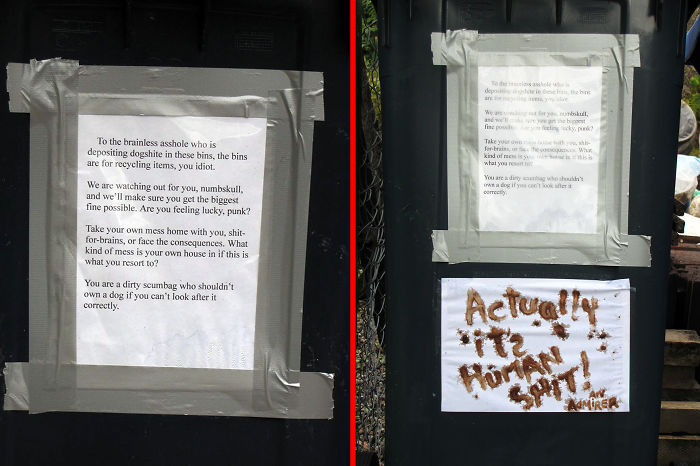 To the brainless asshole who is
depositing dogshite in these bins, the bins
are for recycling items, you idiot.
We are watching out for you, numbskull,
and we'll make sure you get the biggest
fine possible. Are you feeling lucky, punk?
Take your own mess home with you, shit-
for-brains, or face the consequences. What
kind of mess is your own house in if this is
what you resort to?
You are a dirty scumbag who shouldn't
own a dog if you can't look after it
correctly.
To the brainless asshole who is
depositing dogshite in these bins, the bins
are for recycling items, you idiot.
We are watching out for you, numbskull,
and we'll make sure you get the biggest
fine possible. Are you feeling lucky, punk?
Take your own mess home with you, shit-
for-brains, or face the consequences. What
kind of mess is your own house in if this is
what you resort to?
You are a dirty scumbag who shouldn't
own a dog if you can't look after it
correctly.
Actually
iTs
HUMAN
SHiT!
AN
ADMIRER